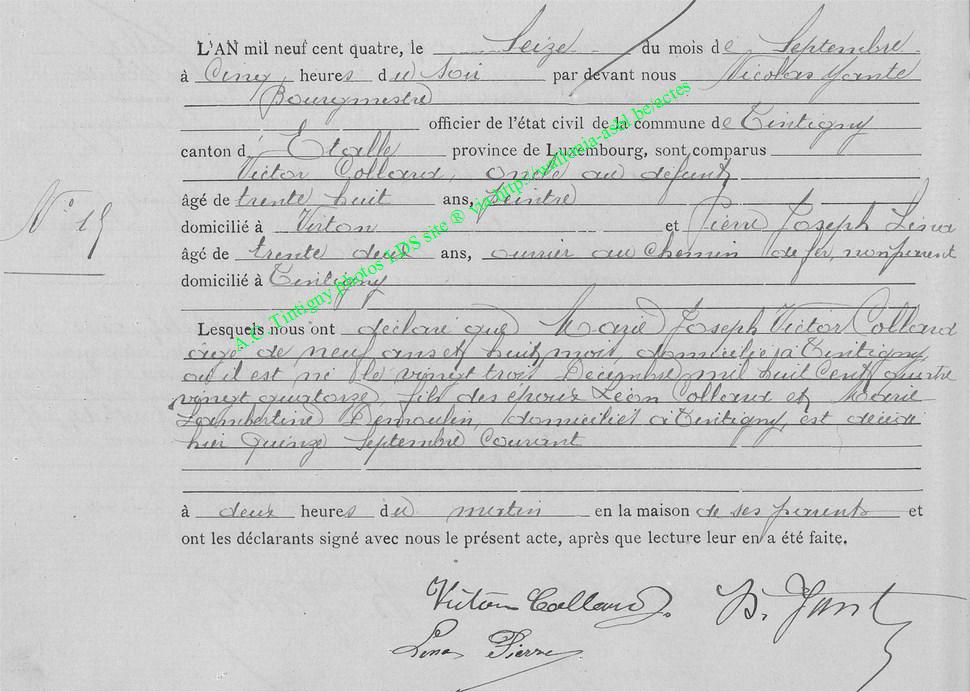 L'AN mil neuf cent quatre, le Seize du mois de Septembre
à Cinq heures du soir par devant nous Nicolas Yante
Bourgmestre
officier de l'état civil de la commune de Tintigny
canton d Etalle province de Luxembourg, sont comparus
Victor Collard, oncle au défunt
âgé de trente huit ans, peintre
domicilié à Virton et Pierre Joseph Lina
N° 15
âgé de trente deux ans, ouvrier au chemin de fer, non parent
domicilié à Tintigny
Lesquels nous ont déclaré que Marie Joseph Victor Collard
âgé de neuf ans et huit mois, domicilié à Tintigny,
où il est né le vingt trois Décembre mil huit cent quatre
vingt quatorze, fils des époux Léon Collard et Marie
Lambertine Demoulin, domiciliés à Tintigny, est décédé
hier quinze Septembre Courant
à deux heures du matin en la maison de ses parents et
ont les déclarants signé avec nous le présent acte, après que lecture leur en a été faite.
Victor Collard. N. Yante
Lina Pierre
A.C. Tintigny photos LDS site ® via http://vallania-asbl.be/actes